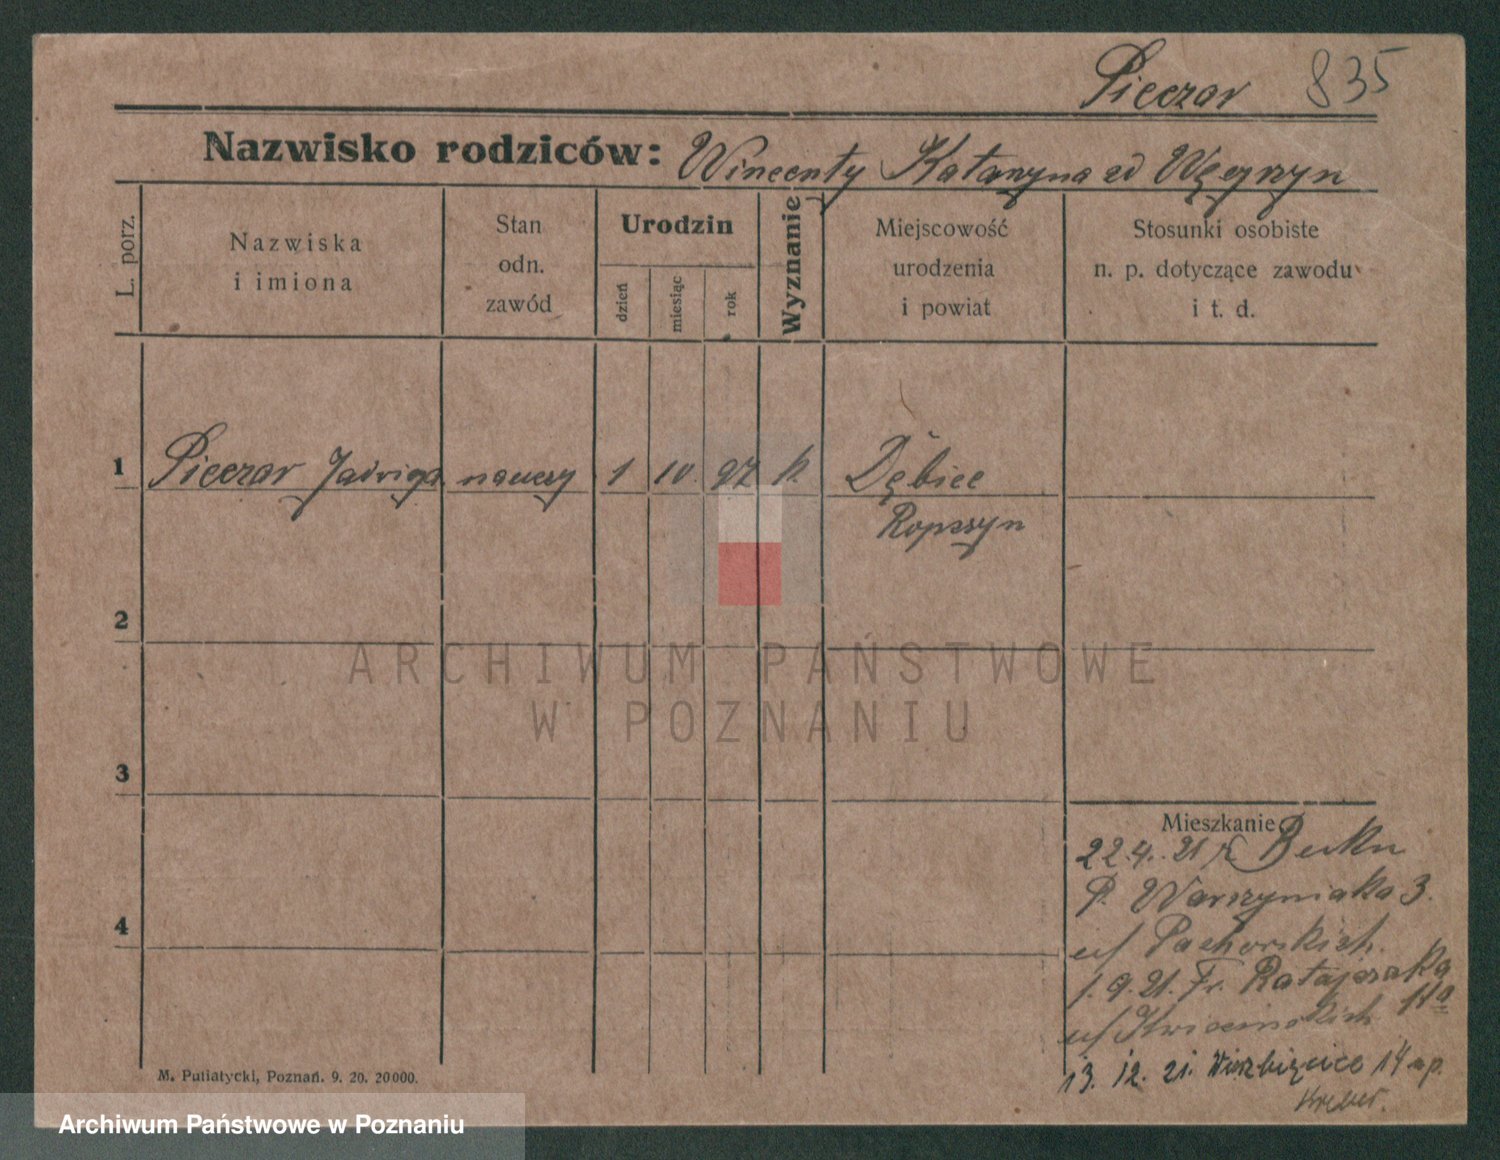 Pieczar 835
Nazwisko rodziców: Wincenty Katarzyna zd Węgrzyn
L. porz.
Nazwiska
i imiona
Stan
odn.
zawód
Urodzin
dzień
miesiąc
rok
Wyznanie
Miejscowość
urodzenia
i powiat
Stosunki osobiste
n. p. dotyczące zawodu
i t. d.
1 Pieczar Jadwiga nauczy 1 10. 97 k.
Dębice
Ropszyn
2
3
4
ARCHIWUM PAŃSTWOWE
W POZNANIU
Mieszkanie
22.4. 21
P. Wawrzyniaka 3.
u/
1. 9. 21. Fr. Ratajczaka
11a
u/
13. 12. 21. Wierzbięcice 14
M. Putiatycki, Poznań. 9. 20. 20000.
Archiwum Państwowe w Poznaniu